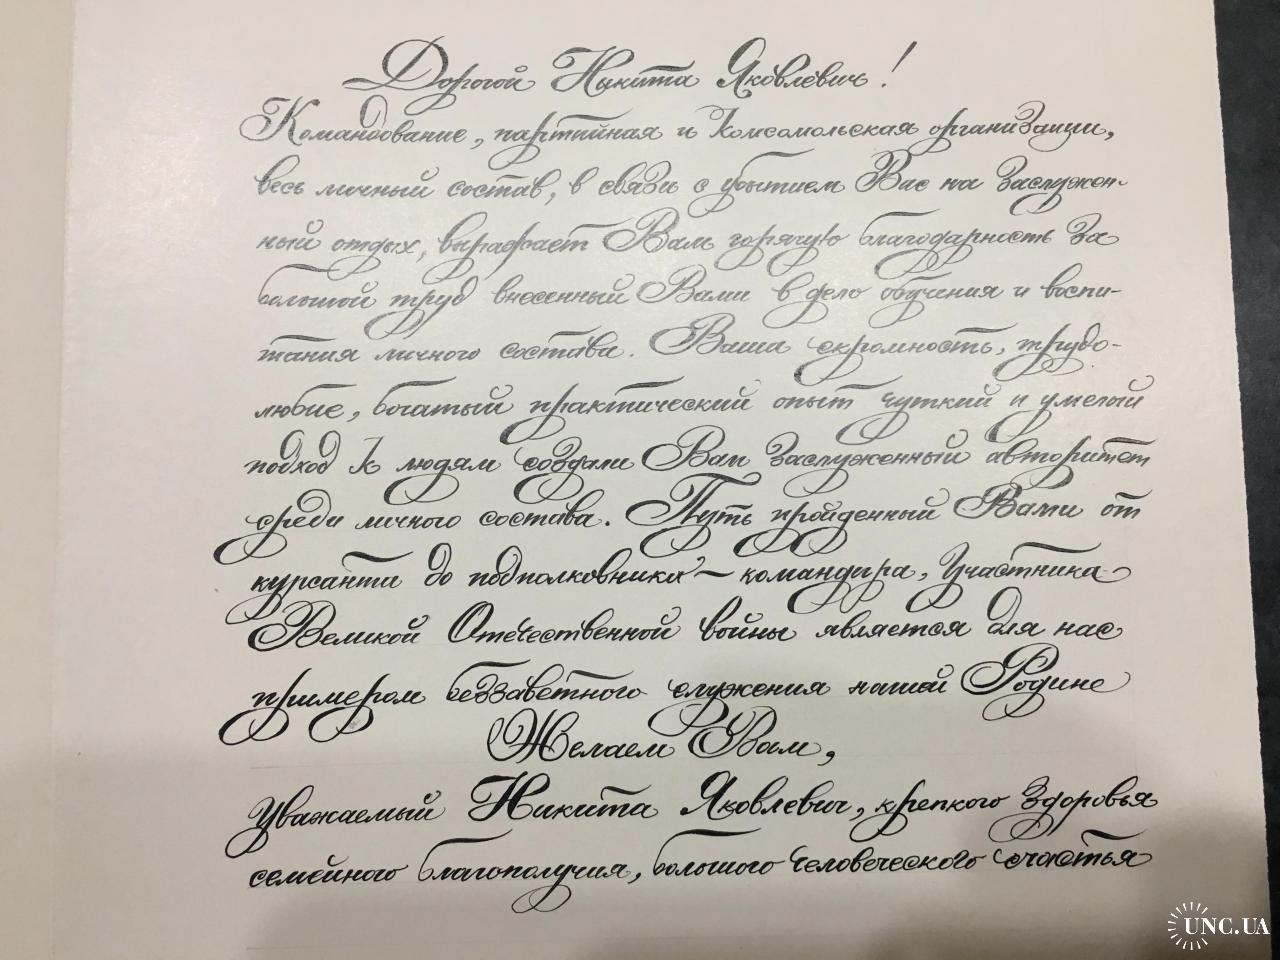 Дорогой Никита Яковлевич!
Командование, партийная и комсомольская организации,
весь личный состав, в связи с убытием Вас на заслужен-
ный отдых, выражает Вам горячую благодарность за
большой труд внесенный Вами в дело обучения и воспи-
тания личного состава. Ваша скромность, трудо-
любие, богатый практический опыт чуткий и умелый
подход к людям создали Вам заслуженный авторитет
среди личного состава. Путь пройденный Вами от
курсанта до подполковника - командира, участника
Великой Отечественной войны является для нас
примером беззаветного служения нашей Родине
Желаем Вам,
уважаемый Никита Яковлевич, крепкого здоровья
семейного благополучия, большого человеческого счастья
UNC.UA